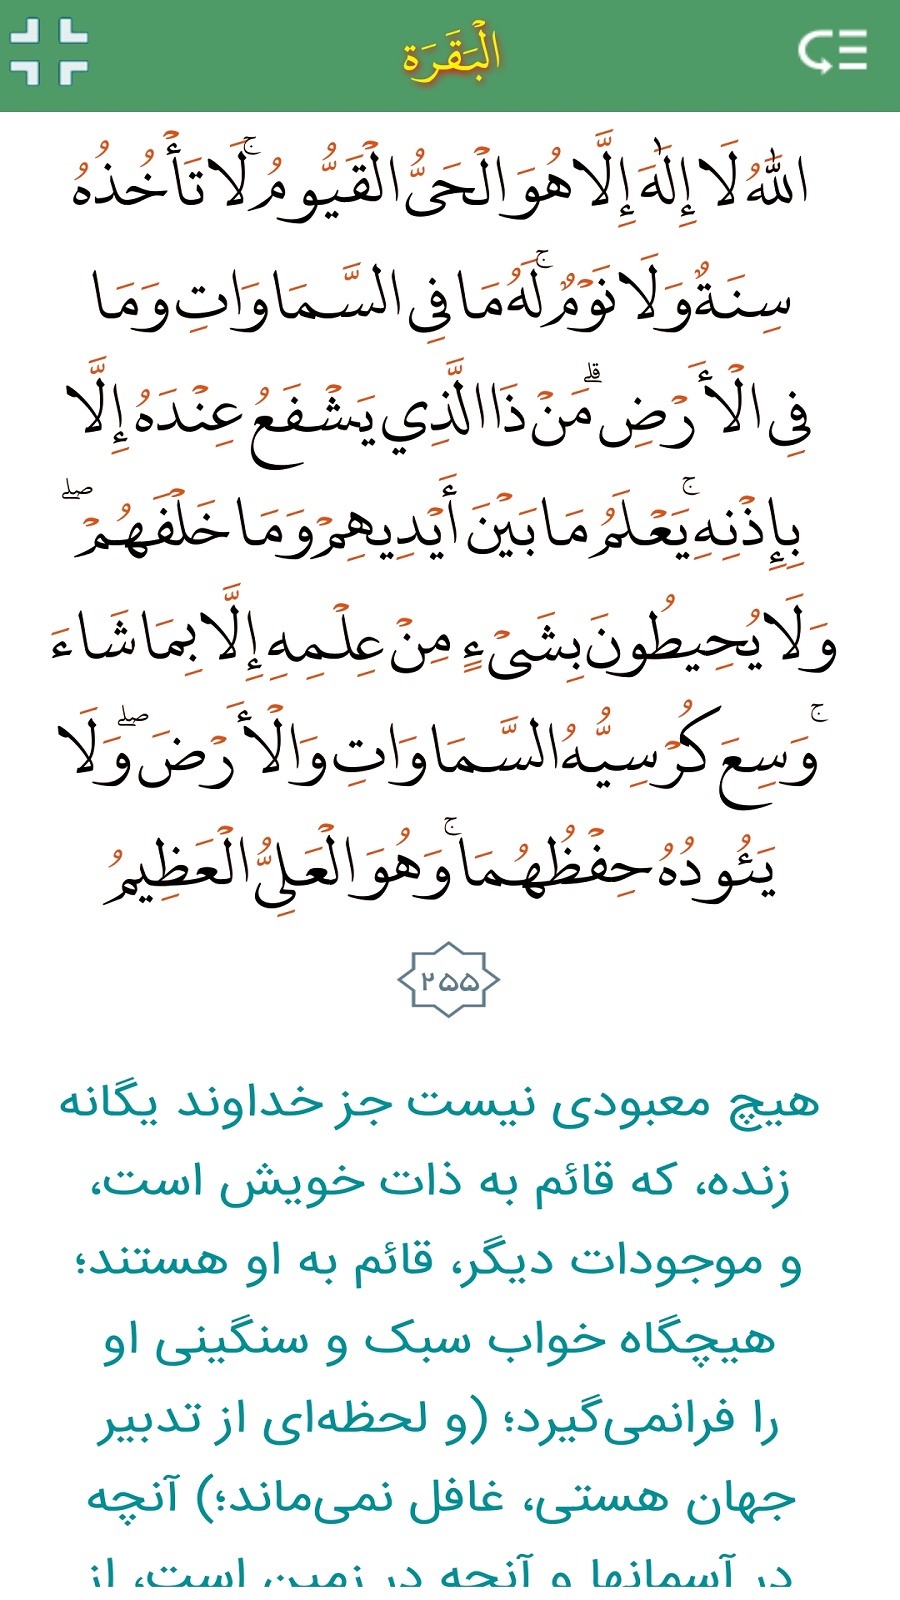 الْبَقَرَة
اللَّهُ لَا إِلَٰهَ إِلَّا هُوَ الْحَيُّ الْقَيُّومُ ۚ لَا تَأْخُذُهُ
سِنَةٌ وَلَا نَوْمٌ ۚ لَهُ مَا فِي السَّمَاوَاتِ وَمَا
فِي الْأَرْضِ ۗ مَنْ ذَا الَّذِي يَشْفَعُ عِنْدَهُ إِلَّا
بِإِذْنِهِ ۚ يَعْلَمُ مَا بَيْنَ أَيْدِيهِمْ وَمَا خَلْفَهُمْ ۖ
وَلَا يُحِيطُونَ بِشَيْءٍ مِنْ عِلْمِهِ إِلَّا بِمَا شَاءَ
ۚ وَسِعَ كُرْسِيُّهُ السَّمَاوَاتِ وَالْأَرْضَ ۖ وَلَا
يَئُودُهُ حِفْظُهُمَا ۚ وَهُوَ الْعَلِيُّ الْعَظِيمُ
۲۵۵
هیچ معبودی نیست جز خداوند یگانه
زنده، که قائم به ذات خویش است،
و موجودات دیگر، قائم به او هستند؛
هیچگاه خواب سبک و سنگینی او
را فرانمی‌گیرد؛ (و لحظه‌ای از تدبیر
جهان هستی، غافل نمی‌ماند؛) آنچه
در آسمانها و آنچه در زمین است، از